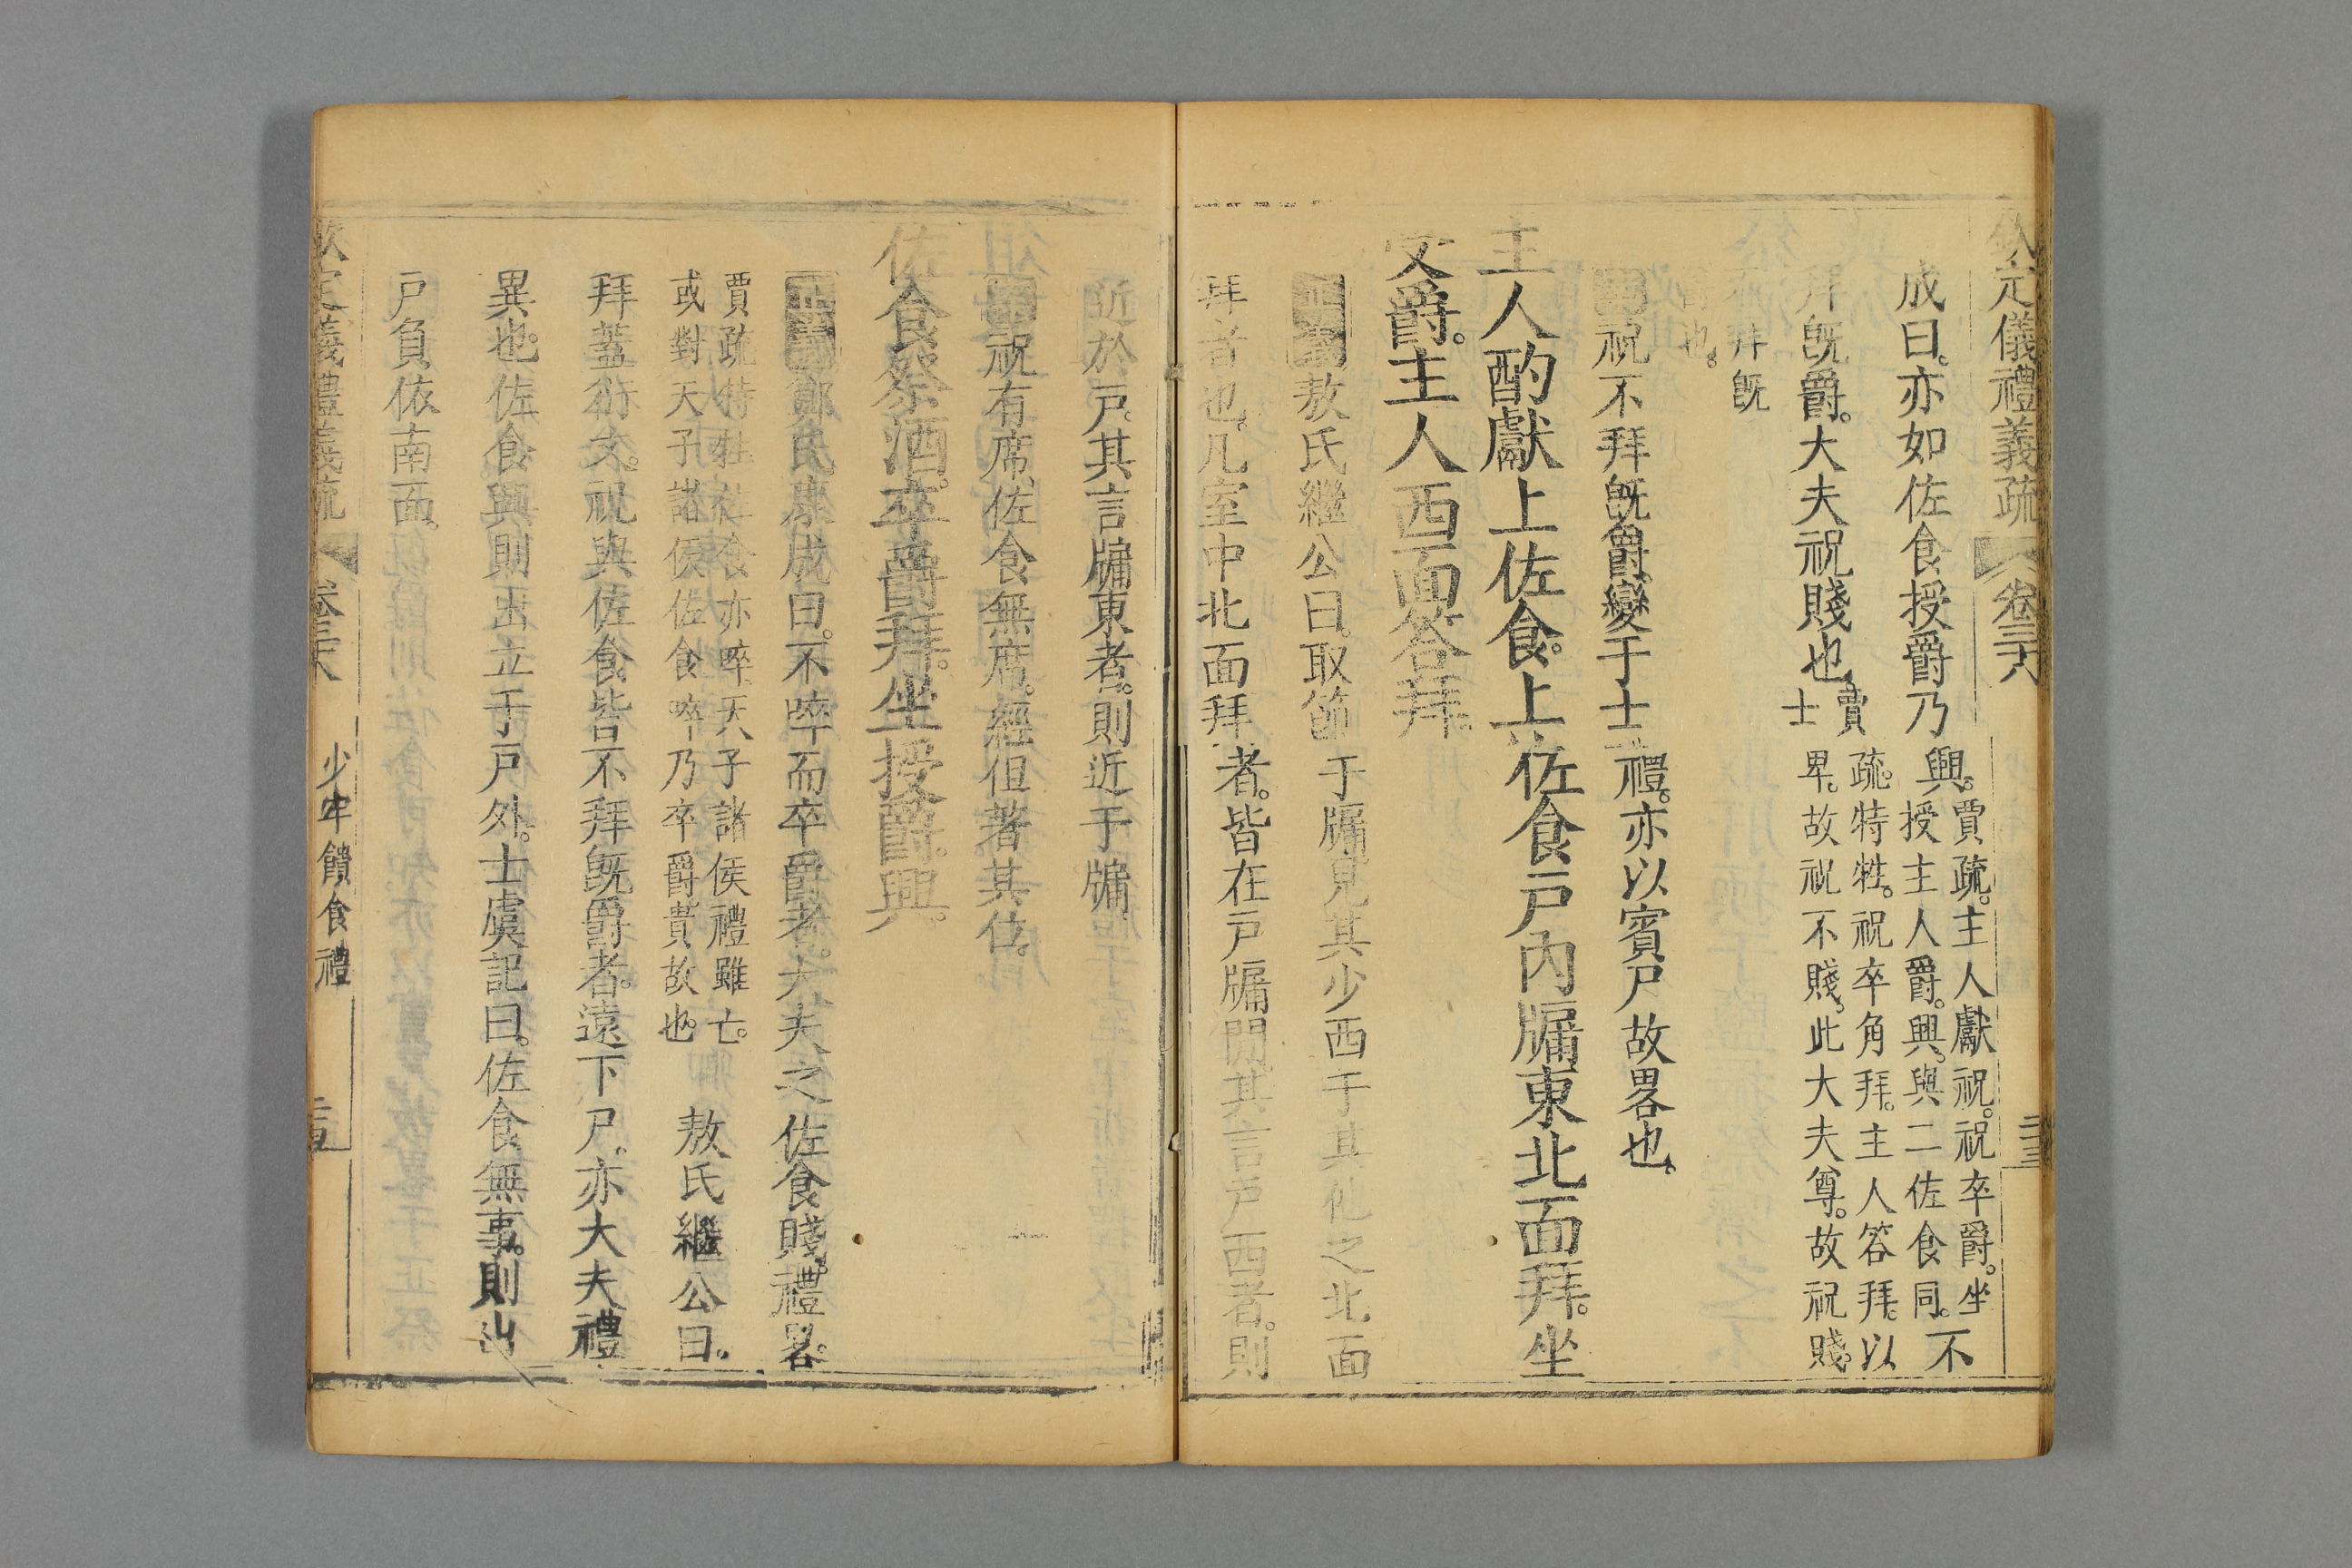 欽定儀禮義疏 卷三十八
成曰。亦如佐食授爵乃興。賈疏。主人獻祝。祝卒爵。坐授主人爵。興。與二佐食同。不
拜旣爵。大夫祝賤也。賈疏。特牲。祝卒角拜。主人答拜。以士卑。故祝不賤。此大夫尊。故祝賤。
不拜旣爵也。
祝不拜旣爵。變于士禮。亦以賓尸故畧也。
主人酌獻上佐食。上佐食戶內牖東北面拜。坐
受爵。主人西面答拜。
敖氏繼公曰。取節于牖。見其少西于其他之北面
拜者也。凡室中北面拜者。皆在戶牖間。其言戶西者。則
近於戶。其言牖東者。則近于牖。
祝有席。佐食無席。經但著其位。
佐食祭酒。卒爵拜。坐授爵。興。
正義鄭氏康成曰。不啐而卒爵者。大夫之佐食賤。禮畧。
賈疏特牲佐食亦啐。天子諸侯禮雖亡。或對天子諸侯佐食啐乃卒爵貴故也。 敖氏繼公曰。
拜蓋衍文。祝與佐食皆不拜旣爵者。遠下尸。亦大夫禮
異也。佐食興則出立于戶外。士虞記曰。佐食無事。則出
戶負依南面。
欽定儀禮義疏 卷三十八 少牢饋食禮